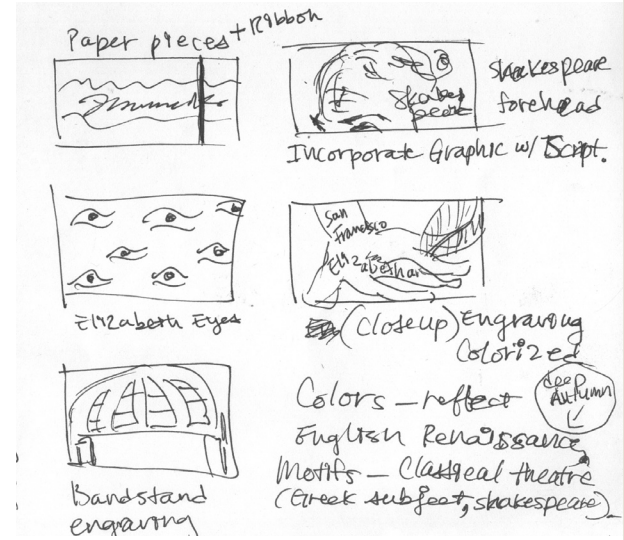 Paper pieces + Ribbon
Shakes
peare
Shakespeare
forehead
Incorporate Graphic w/ Script.
San
Francisco
Elizabethan
Elizabeth Eyes
(Closeup) Engraving
Colorized
Colors – reflect
deep
Autumn
English Renaissance
Motifs – Classical theatre
(Greek subject, shakespeare)
Bandstand
engraving